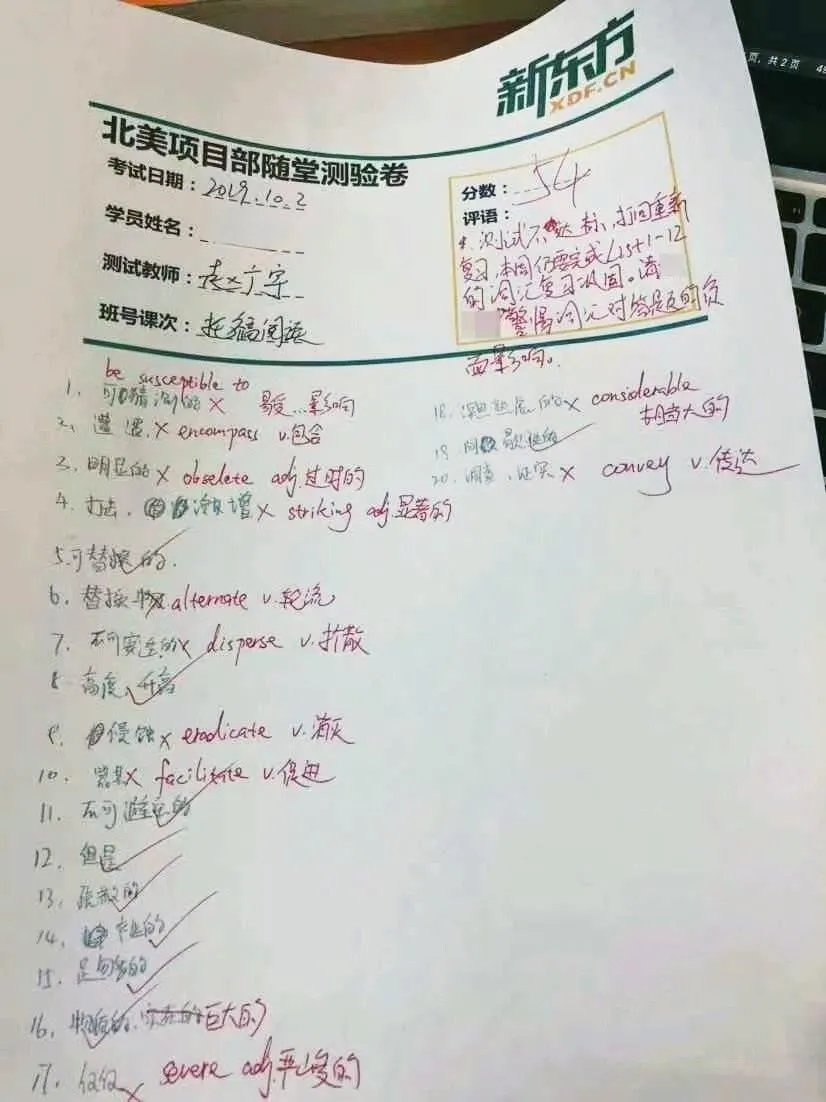 页，共2页
新东方
XDF.CN
北美项目部随堂测验卷
考试日期：2019.10.2
学员姓名：
测试教师：宇
班号课次：托福阅读
分数：54
评语：
测试不达标，打回重新
复习，本周仍要完成List1-12
的词汇复习巩固。请
警惕词汇对答题的负
面影响。
be susceptible to
1. 可猜测的 × 易受…影响
2. 遭遇 × encompass v.包含
3. 明显的 × obselete adj.过时的
4. 打击， 增 × striking adj.显著的
5. 可替换的.
6. 替换物 × alternate v.轮流
7. 不可 的 × disperse v.扩散
8 高度，升高
9. 侵蚀 × eradicate v.消灭
10. × facilitate v.促进
11. 不可避免的
12. 但是
13. 的
14. 的
15. 足够多的
16. 物质的. 巨大的
17. 仅仅 × severe adj.严峻的
18. 的 × considerable
相当大的
19
20. 调查、证实 × convey v.传达